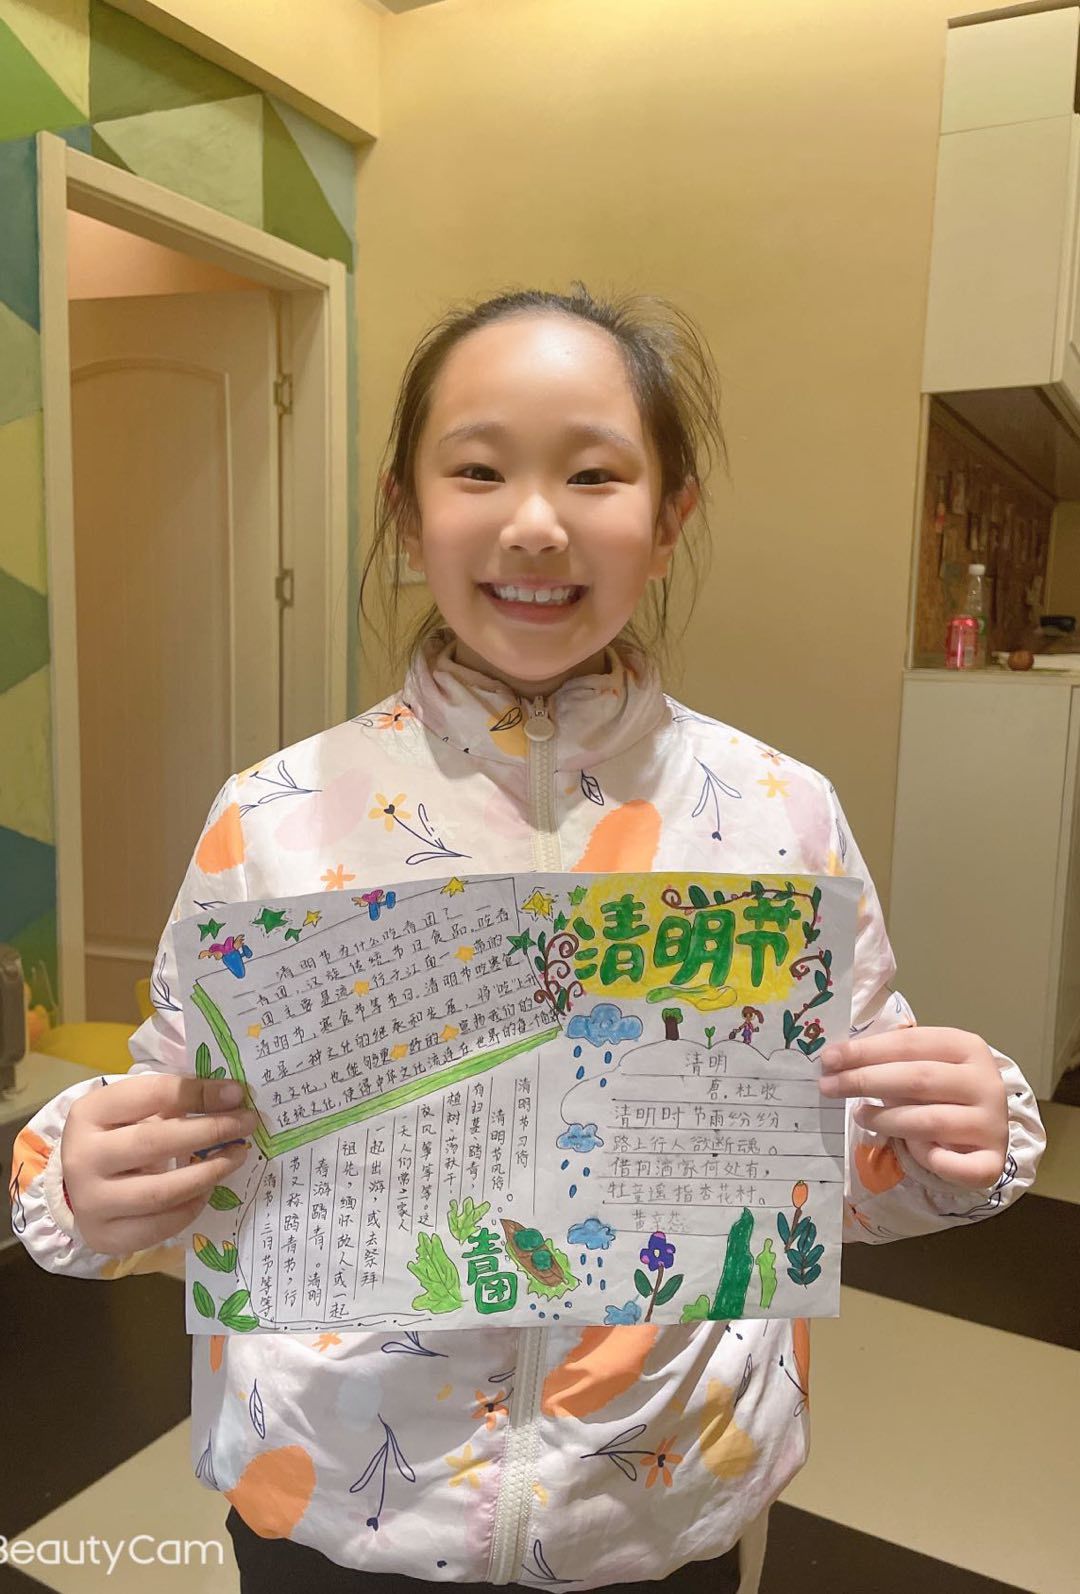 清明节
清明节为什么吃青团?
青团,汉族传统节日食品,吃青
团主要是流行于江南一带的
清明节,寒食节等节日。清明节吃寒食
也是一种文化的继承和发展,将"吃"上升
为文化,也能够更好的宣扬我们的
传统文化,使得中华文化流连在世界的每一个角落
清明
唐.杜牧
清明时节雨纷纷,
路上行人欲断魂。
借问酒家何处有,
牧童遥指杏花村。
清明节习俗
清明节风俗
有扫墓、踏青、
植树、荡秋千、
放风筝等等。这
一天人们常二家人
一起出游,或去祭拜
祖先,缅怀故人或一起
春游踏青。清明
节又称踏青节,行
清节,三月节等等。
青团
BeautyCam